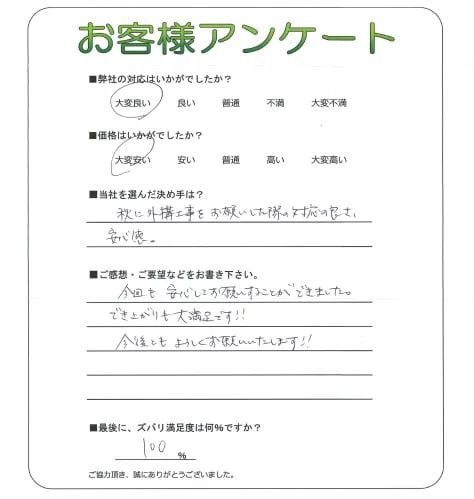 お客様アンケート
■弊社の対応はいかがでしたか？
大変良い 良い 普通 不満 大変不満
■価格はいかがでしたか？
大変安い 安い 普通 高い 大変高い
■当社を選んだ決め手は？
秋に外構工事をお願いした際の対応の良さ、
安心感。
■ご感想・ご要望などをお書き下さい。
今回も安心してお願いすることができました。
でき上がりも大満足です!!
今後ともよろしくお願いいたします!!
■最後に、ズバリ満足度は何％ですか？
100 %
ご協力頂き、誠にありがとうございました。